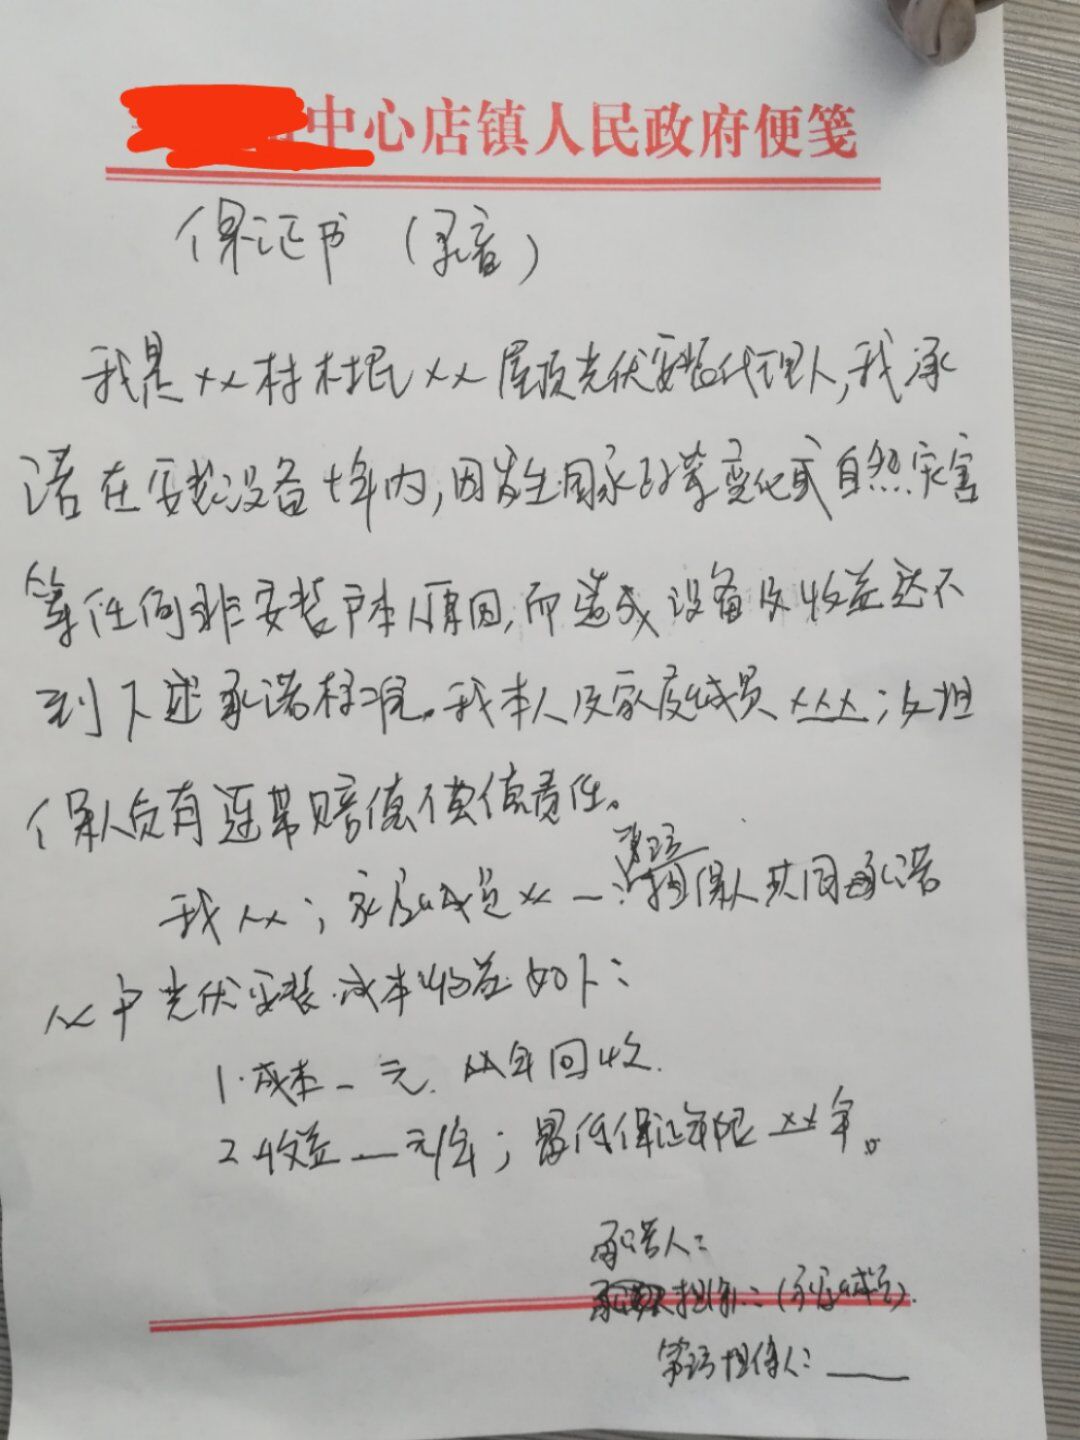 中心店镇人民政府便笺
保证书（录音）
我是××村村民××屋顶光伏安装代理人，我承
诺在安装设备十年内，因发生国家政策变化或自然灾害
等任何非安装户本人原因，而造成设备及收益达不
到下述承诺标准。我本人及家庭成员×××；及担
保人负有连带赔偿偿债责任。
第三方
我××；家庭成员××一；担保人共同承诺
××户光伏安装成本收益如下：
1.成本_元.××年回收.
2.收益__元/年；最低保证年限××年。
承诺人：
担保人：（家庭成员）.
第三方担保人：____